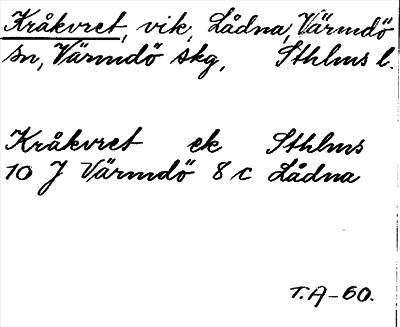 Kråkvret, vik, Lådna, Värmdö
sn, Värmdö skg, Sthlms l.
Kråkvret ek Sthlms
10 J Värmdö 8 c Lådna
T.A-60.